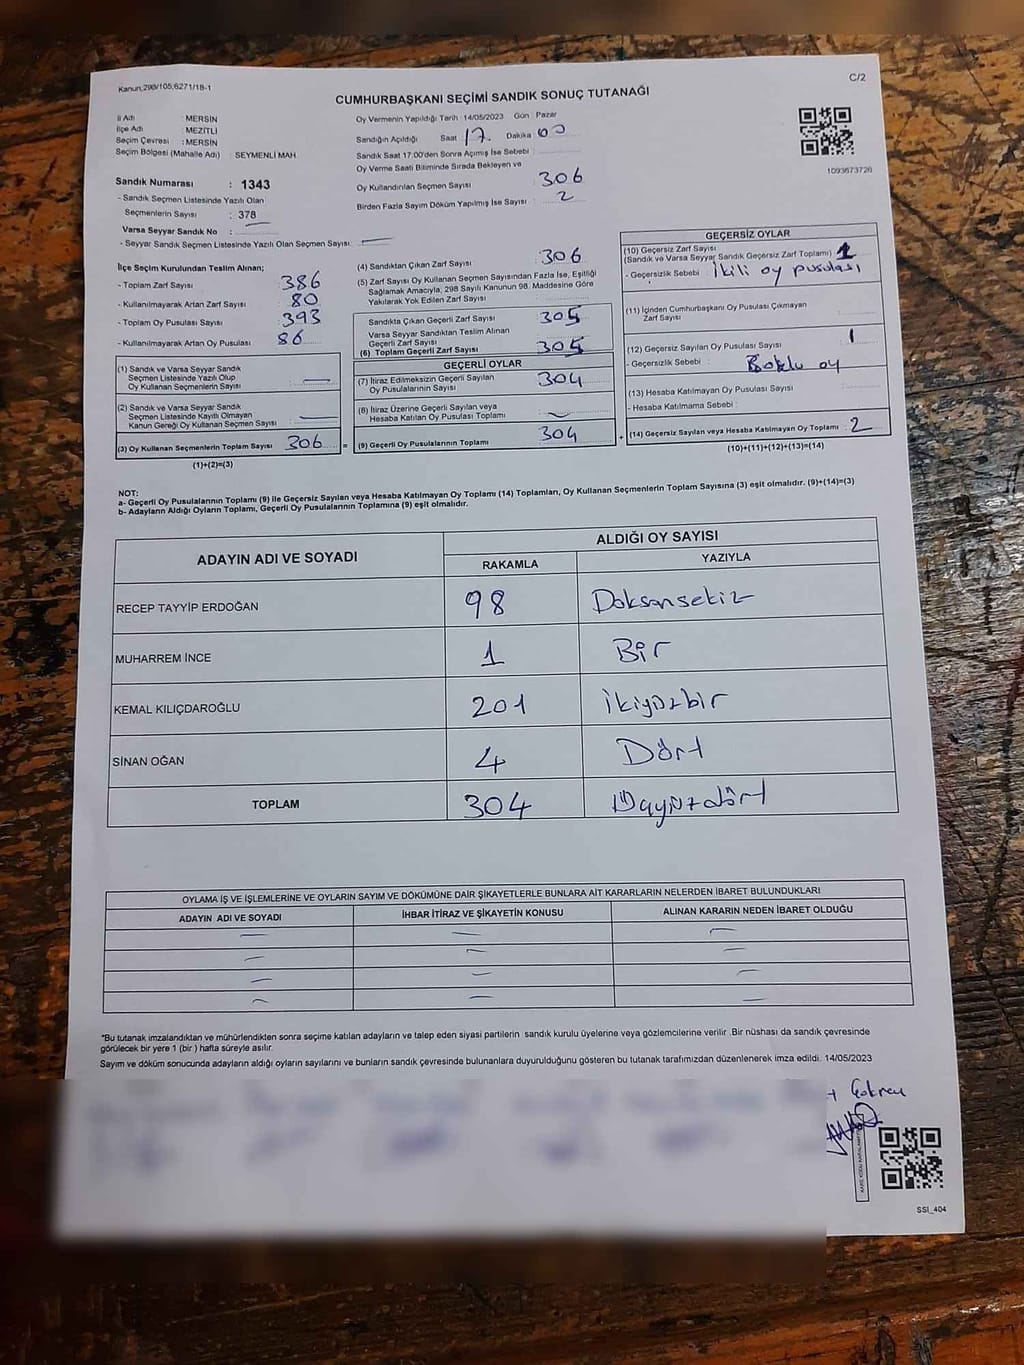 Kanun;298/105;6271/18-1
C/2
CUMHURBAŞKANI SEÇİMİ SANDIK SONUÇ TUTANAĞI
İl Adı : MERSİN
İlçe Adı : MEZİTLİ
Seçim Çevresi : MERSİN
Seçim Bölgesi (Mahalle Adı) : SEYMENLİ MAH
Sandık Numarası : 1343
- Sandık Seçmen Listesinde Yazılı Olan
Seçmenlerin Sayısı : 378
Varsa Seyyar Sandık No :
- Seyyar Sandık Seçmen Listesinde Yazılı Olan Seçmen Sayısı :
Oy Vermenin Yapıldığı Tarih :14/05/2023 Gün : Pazar
Sandığın Açıldığı Saat : 17 Dakika : 00
Sandık Saat 17:00'den Sonra Açımış İse Sebebi :
Oy Verme Saati Bitiminde Sırada Bekleyen ve
Oy Kullandırılan Seçmen Sayısı : 306
Birden Fazla Sayım Döküm Yapılmış İse Sayısı : 2
1093673726
İlçe Seçim Kurulundan Teslim Alınan;
- Toplam Zarf Sayısı : 386
- Kullanılmayarak Artan Zarf Sayısı : 80
- Toplam Oy Pusulası Sayısı : 393
- Kullanılmayarak Artan Oy Pusulası : 86
(1) Sandık ve Varsa Seyyar Sandık
Seçmen Listesinde Yazılı Olup
Oy Kullanan Seçmenlerin Sayısı :
(2) Sandık ve Varsa Seyyar Sandık
Seçmen Listesinde Kayıtlı Olmayan
Kanun Gereği Oy Kullanan Seçmen Sayısı :
(3) Oy Kullanan Seçmenlerin Toplam Sayısı : 306 =
(1)+(2)=(3)
(4) Sandıktan Çıkan Zarf Sayısı : 306
(5) Zarf Sayısı Oy Kullanan Seçmen Sayısından Fazla İse, Eşitliği
Sağlamak Amacıyla, 298 Sayılı Kanunun 98. Maddesine Göre
Yakılarak Yok Edilen Zarf Sayısı :
Sandıkta Çıkan Geçerli Zarf Sayısı : 305
Varsa Seyyar Sandıktan Teslim Alınan
Geçerli Zarf Sayısı :
(6) Toplam Geçerli Zarf Sayısı : 305
GEÇERLİ OYLAR
(7) İtiraz Edilmeksizin Geçerli Sayılan
Oy Pusulalarının Sayısı : 304
(8) İtiraz Üzerine Geçerli Sayılan veya
Hesaba Katılan Oy Pusulası Toplamı :
(9) Geçerli Oy Pusulalarının Toplamı : 304 +
GEÇERSİZ OYLAR
(10) Geçersiz Zarf Sayısı
(Sandık ve Varsa Seyyar Sandık Geçersiz Zarf Toplamı) : 1
- Geçersizlik Sebebi : İkili oy pusulası
(11) İçinden Cumhurbaşkanı Oy Pusulası Çıkmayan
Zarf Sayısı :
(12) Geçersiz Sayılan Oy Pusulası Sayısı : 1
- Geçersizlik Sebebi : oy
(13) Hesaba Katılmayan Oy Pusulası Sayısı :
- Hesaba Katılmama Sebebi :
(14) Geçersiz Sayılan veya Hesaba Katılmayan Oy Toplamı : 2
(10)+(11)+(12)+(13)=(14)
NOT:
a- Geçerli Oy Pusulalarının Toplamı (9) ile Geçersiz Sayılan veya Hesaba Katılmayan Oy Toplamı (14) Toplamları, Oy Kullanan Seçmenlerin Toplam Sayısına (3) eşit olmalıdır. (9)+(14)=(3)
b- Adayların Aldığı Oyların Toplamı, Geçerli Oy Pusulalarının Toplamına (9) eşit olmalıdır.
ADAYIN ADI VE SOYADI ALDIĞI OY SAYISI
RAKAMLA YAZIYLA
RECEP TAYYİP ERDOĞAN 98 Doksansekiz
MUHARREM İNCE 1 Bir
KEMAL KILIÇDAROĞLU 201 İkiyüzbir
SİNAN OĞAN 4 Dört
TOPLAM 304 Üçyüzdört
OYLAMA İŞ VE İŞLEMLERİNE VE OYLARIN SAYIM VE DÖKÜMÜNE DAİR ŞİKAYETLERLE BUNLARA AİT KARARLARIN NELERDEN İBARET BULUNDUKLARI
ADAYIN ADI VE SOYADI İHBAR İTİRAZ VE ŞİKAYETİN KONUSU ALINAN KARARIN NEDEN İBARET OLDUĞU
*Bu tutanak imzalandıktan ve mühürlendikten sonra seçime katılan adayların ve talep eden siyasi partilerin sandık kurulu üyelerine veya gözlemcilerine verilir .Bir nüshası da sandık çevresinde
görülecek bir yere 1 (bir ) hafta süreyle asılır.
Sayım ve döküm sonucunda adayların aldığı oyların sayılarını ve bunların sandık çevresinde bulunanlara duyurulduğunu gösteren bu tutanak tarafımızdan düzenlenerek imza edildi. 14/05/2023
SSI_404